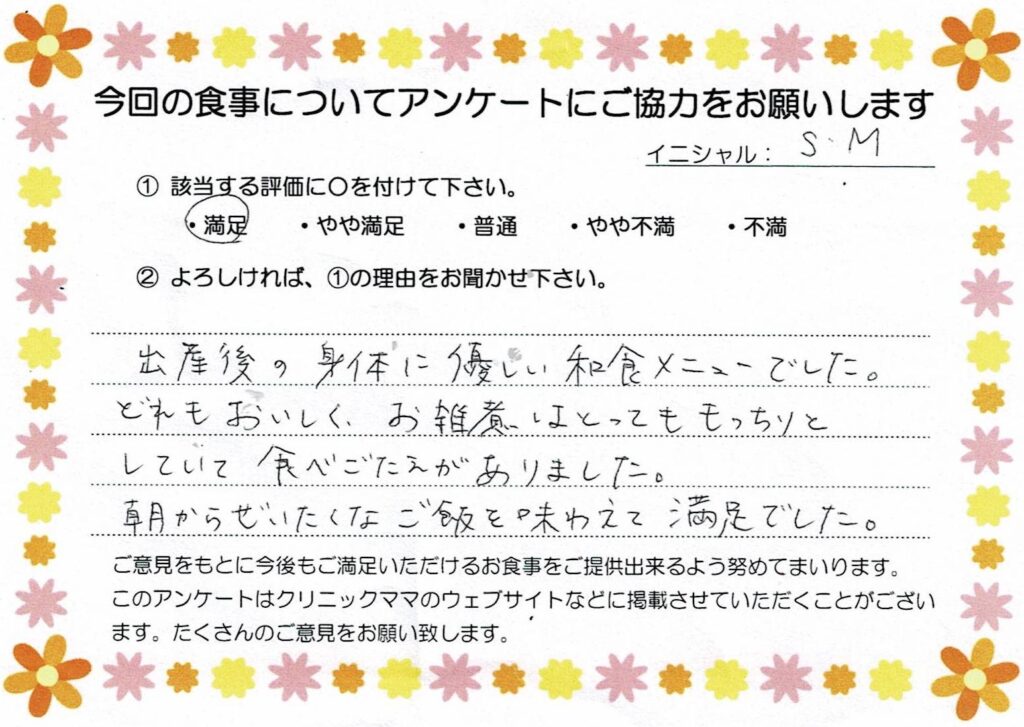 今回の食事についてアンケートにご協力をお願いします
イニシャル： S.M
① 該当する評価に〇を付けて下さい。
・満足 ・やや満足 ・普通 ・やや不満 ・不満
② よろしければ、①の理由をお聞かせ下さい。
出産後の身体に優しい和食メニューでした。
どれもおいしく、お雑煮はとってももっちりと
していて食べごたえがありました。
朝からぜいたくなご飯を味わえて満足でした。
ご意見をもとに今後もご満足いただけるお食事をご提供出来るよう努めてまいります。
このアンケートはクリニックママのウェブサイトなどに掲載させていただくことがござい
ます。たくさんのご意見をお願い致します。